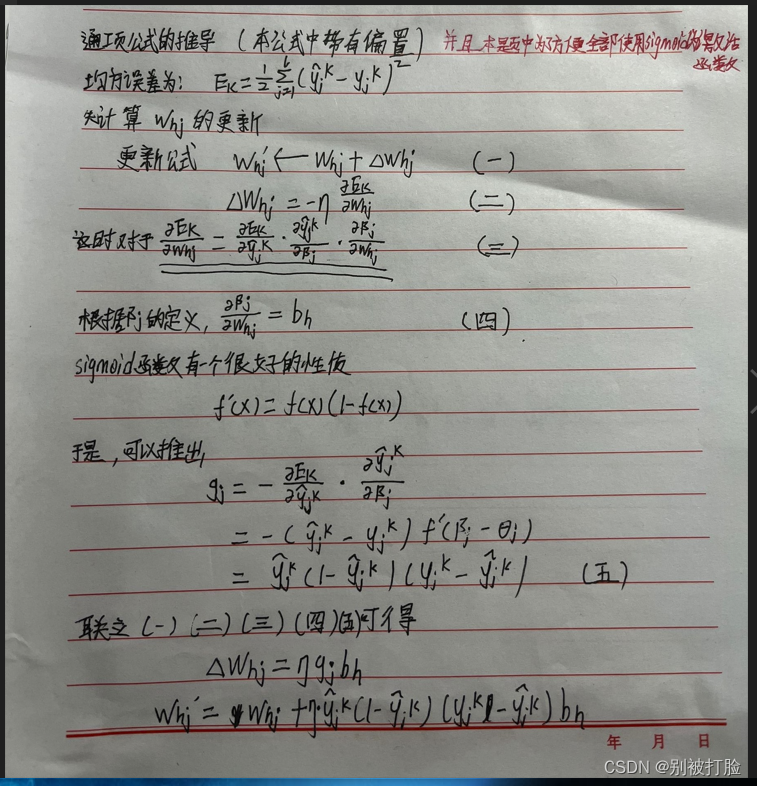 通项公式的推导（本公式中带有偏置）并且本题中为了方便全部使用sigmoid为激活函数
均方误差为: E_K = 1/2 Σ_{j=1}^{l} (ŷ_j^K - y_j^K)^2
先计算 W_hj 的更新
更新公式 W_hj' ← W_hj + ΔW_hj （一）
ΔW_hj = -η ∂E_K/∂W_hj （二）
这时对于 ∂E_K/∂W_hj = ∂E_K/∂ŷ_j^K · ∂ŷ_j^K/∂β_j · ∂β_j/∂W_hj （三）
根据β_j的定义, ∂β_j/∂W_hj = b_h （四）
sigmoid函数有一个很好的性质
f'(x) = f(x)(1-f(x))
于是,可以推出
g_j = - ∂E_K/∂ŷ_j^K · ∂ŷ_j^K/∂β_j
= -(ŷ_j^K - y_j^K) f'(β_j - θ_j)
= ŷ_j^K (1-ŷ_j^K) (y_j^K - ŷ_j^K) （五）
联立（一）（二）（三）（四）（五）可得
ΔW_hj = η g_j b_h
W_hj' = W_hj + η·ŷ_j^K (1-ŷ_j^K) (y_j^K - ŷ_j^K) b_h
年 月 日
CSDN @别被打脸